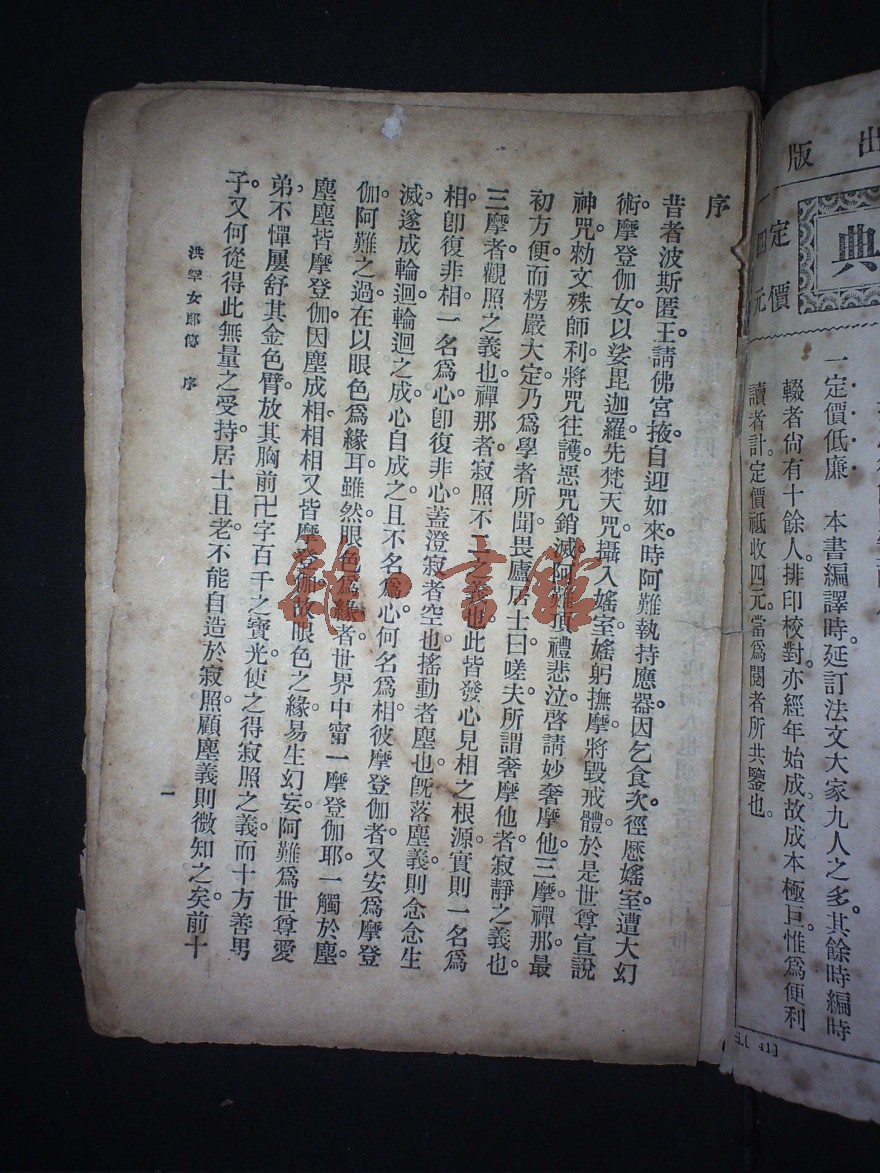 出版
典
定價
四元
一定價低廉　本書編譯時。延訂法文大家九人之多。其餘時編時
輟者尙有十餘人。排印校對。亦經年始成。故成本極巨。惟爲便利
讀者計。定價祗收四元。當爲閱者所共鑒也。
序
昔者波斯匿王。請佛宮掖。自迎如來。時阿難執持應器。因乞食次。徑歷婬室。遭大幻
術。摩登伽女。以娑毘迦羅先梵天咒。攝入婬室。婬躬撫摩。將毀戒體。於是世尊宣說
神咒。勅文殊師利。將咒往護。惡咒銷滅。阿難頂禮悲泣。啓請妙奢摩他三摩禪那。最
初方便。而楞嚴大定。乃爲學者所聞。畏廬居士曰。嗟夫。所謂奢摩他者。寂靜之義也。
三摩者。觀照之義也。禪那者。寂照不二之義也。此皆發心見相之根源。實則一名爲
相。卽復非相。一名爲心。卽復非心。蓋澄寂者空也。搖動者塵也。旣落塵義。則念念生
滅。遂成輪迴。輪迴之成。心自成之。且不名爲心。何名爲相。彼摩登伽者。又安爲摩登
伽。阿難之過。在以眼色爲緣耳。雖然。眼色爲緣者。世界中甯一摩登伽耶。一觸於塵。
塵塵皆摩登伽。因塵成相。相相又皆摩登伽。故眼色之緣。易生幻妄。阿難爲世尊愛
弟。不憚屢舒其金色臂。放其胸前卍字百千之寶光。使之得寂照之義。而十方善男
子。又何從得此無量之受持。居士且老。不能自造於寂照。顧塵義則微知之矣。前十
洪罕女郎傳　序
一
雜·書館